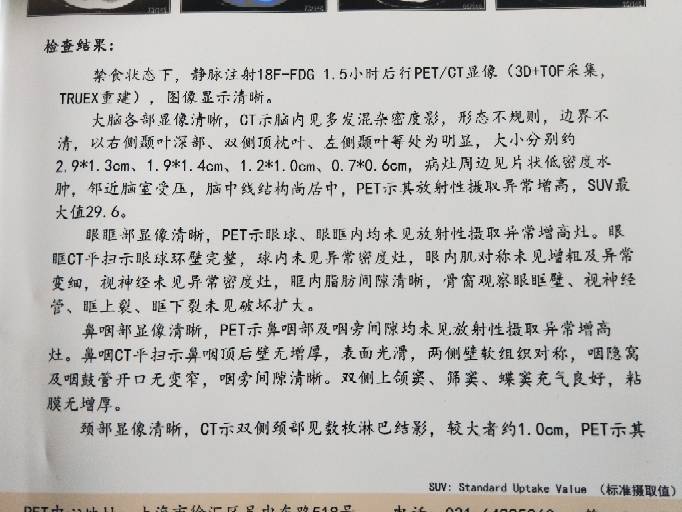 检查结果:
禁食状态下,静脉注射18F-FDG 1.5小时后行PET/CT显像(3D+TOF采集,
TRUEX重建),图像显示清晰。
大脑各部显像清晰,CT示脑内见多发混杂密度影,形态不规则,边界不
清,以右侧颞叶深部、双侧顶枕叶、左侧颞叶等处为明显,大小分别约
2.9*1.3cm、1.9*1.4cm、1.2*1.0cm、0.7*0.6cm,病灶周边见片状低密度水
肿,邻近脑室受压,脑中线结构尚居中,PET示其放射性摄取异常增高,SUV最
大值29.6。
眼眶部显像清晰,PET示眼球、眼眶内均未见放射性摄取异常增高灶。眼
眶CT平扫示眼球环壁完整,球内未见异常密度灶,眼内肌对称未见增粗及异常
变细,视神经未见异常密度灶,眶内脂肪间隙清晰,骨窗观察眼眶壁、视神经
管、眶上裂、眶下裂未见破坏扩大。
鼻咽部显像清晰,PET示鼻咽部及咽旁间隙均未见放射性摄取异常增高
灶。鼻咽CT平扫示鼻咽顶后壁无增厚,表面光滑,两侧壁软组织对称,咽隐窝
及咽鼓管开口无变窄,咽旁间隙清晰。双侧上颌窦、筛窦、蝶窦充气良好,粘
膜无增厚。
颈部显像清晰,CT示双侧颈部见数枚淋巴结影,较大者约1.0cm,PET示其
SUV: Standard Uptake Value (标准摄取值)